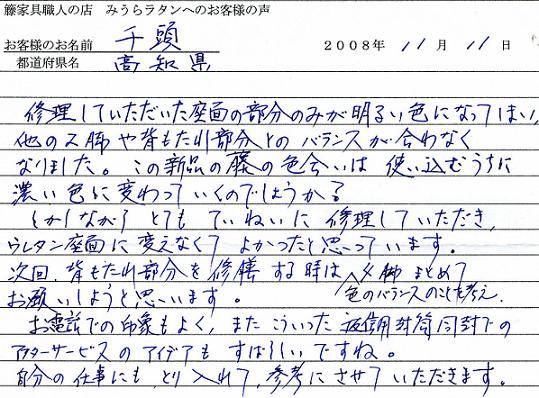 籐家具職人の店　みうらラタンへのお客様の声
お客様のお名前　千頭　2008年 11月 11日
都道府県名　高知県
修理していただいた座面の部分のみが明るい色になってしまい、
他の2脚や背もたれ部分とのバランスが合わなく
なりました。この新品の藤の色合いは使い込むうちに
濃い色に変わっていくのでしょうか?
しかしながら とても ていねいに 修理していただき、
ウレタン座面に変えなくて よかったと思っています。
次回、背もたれ部分を修繕する時は 色のバランスのことを考え、 脚まとめて
お願いしようと思います。
お電話での印象もよく、また こういった返信用封筒同封での
アフターサービスのアイデアも すばらしいですね。
自分の仕事にも、とり入れて、参考にさせていただきます。